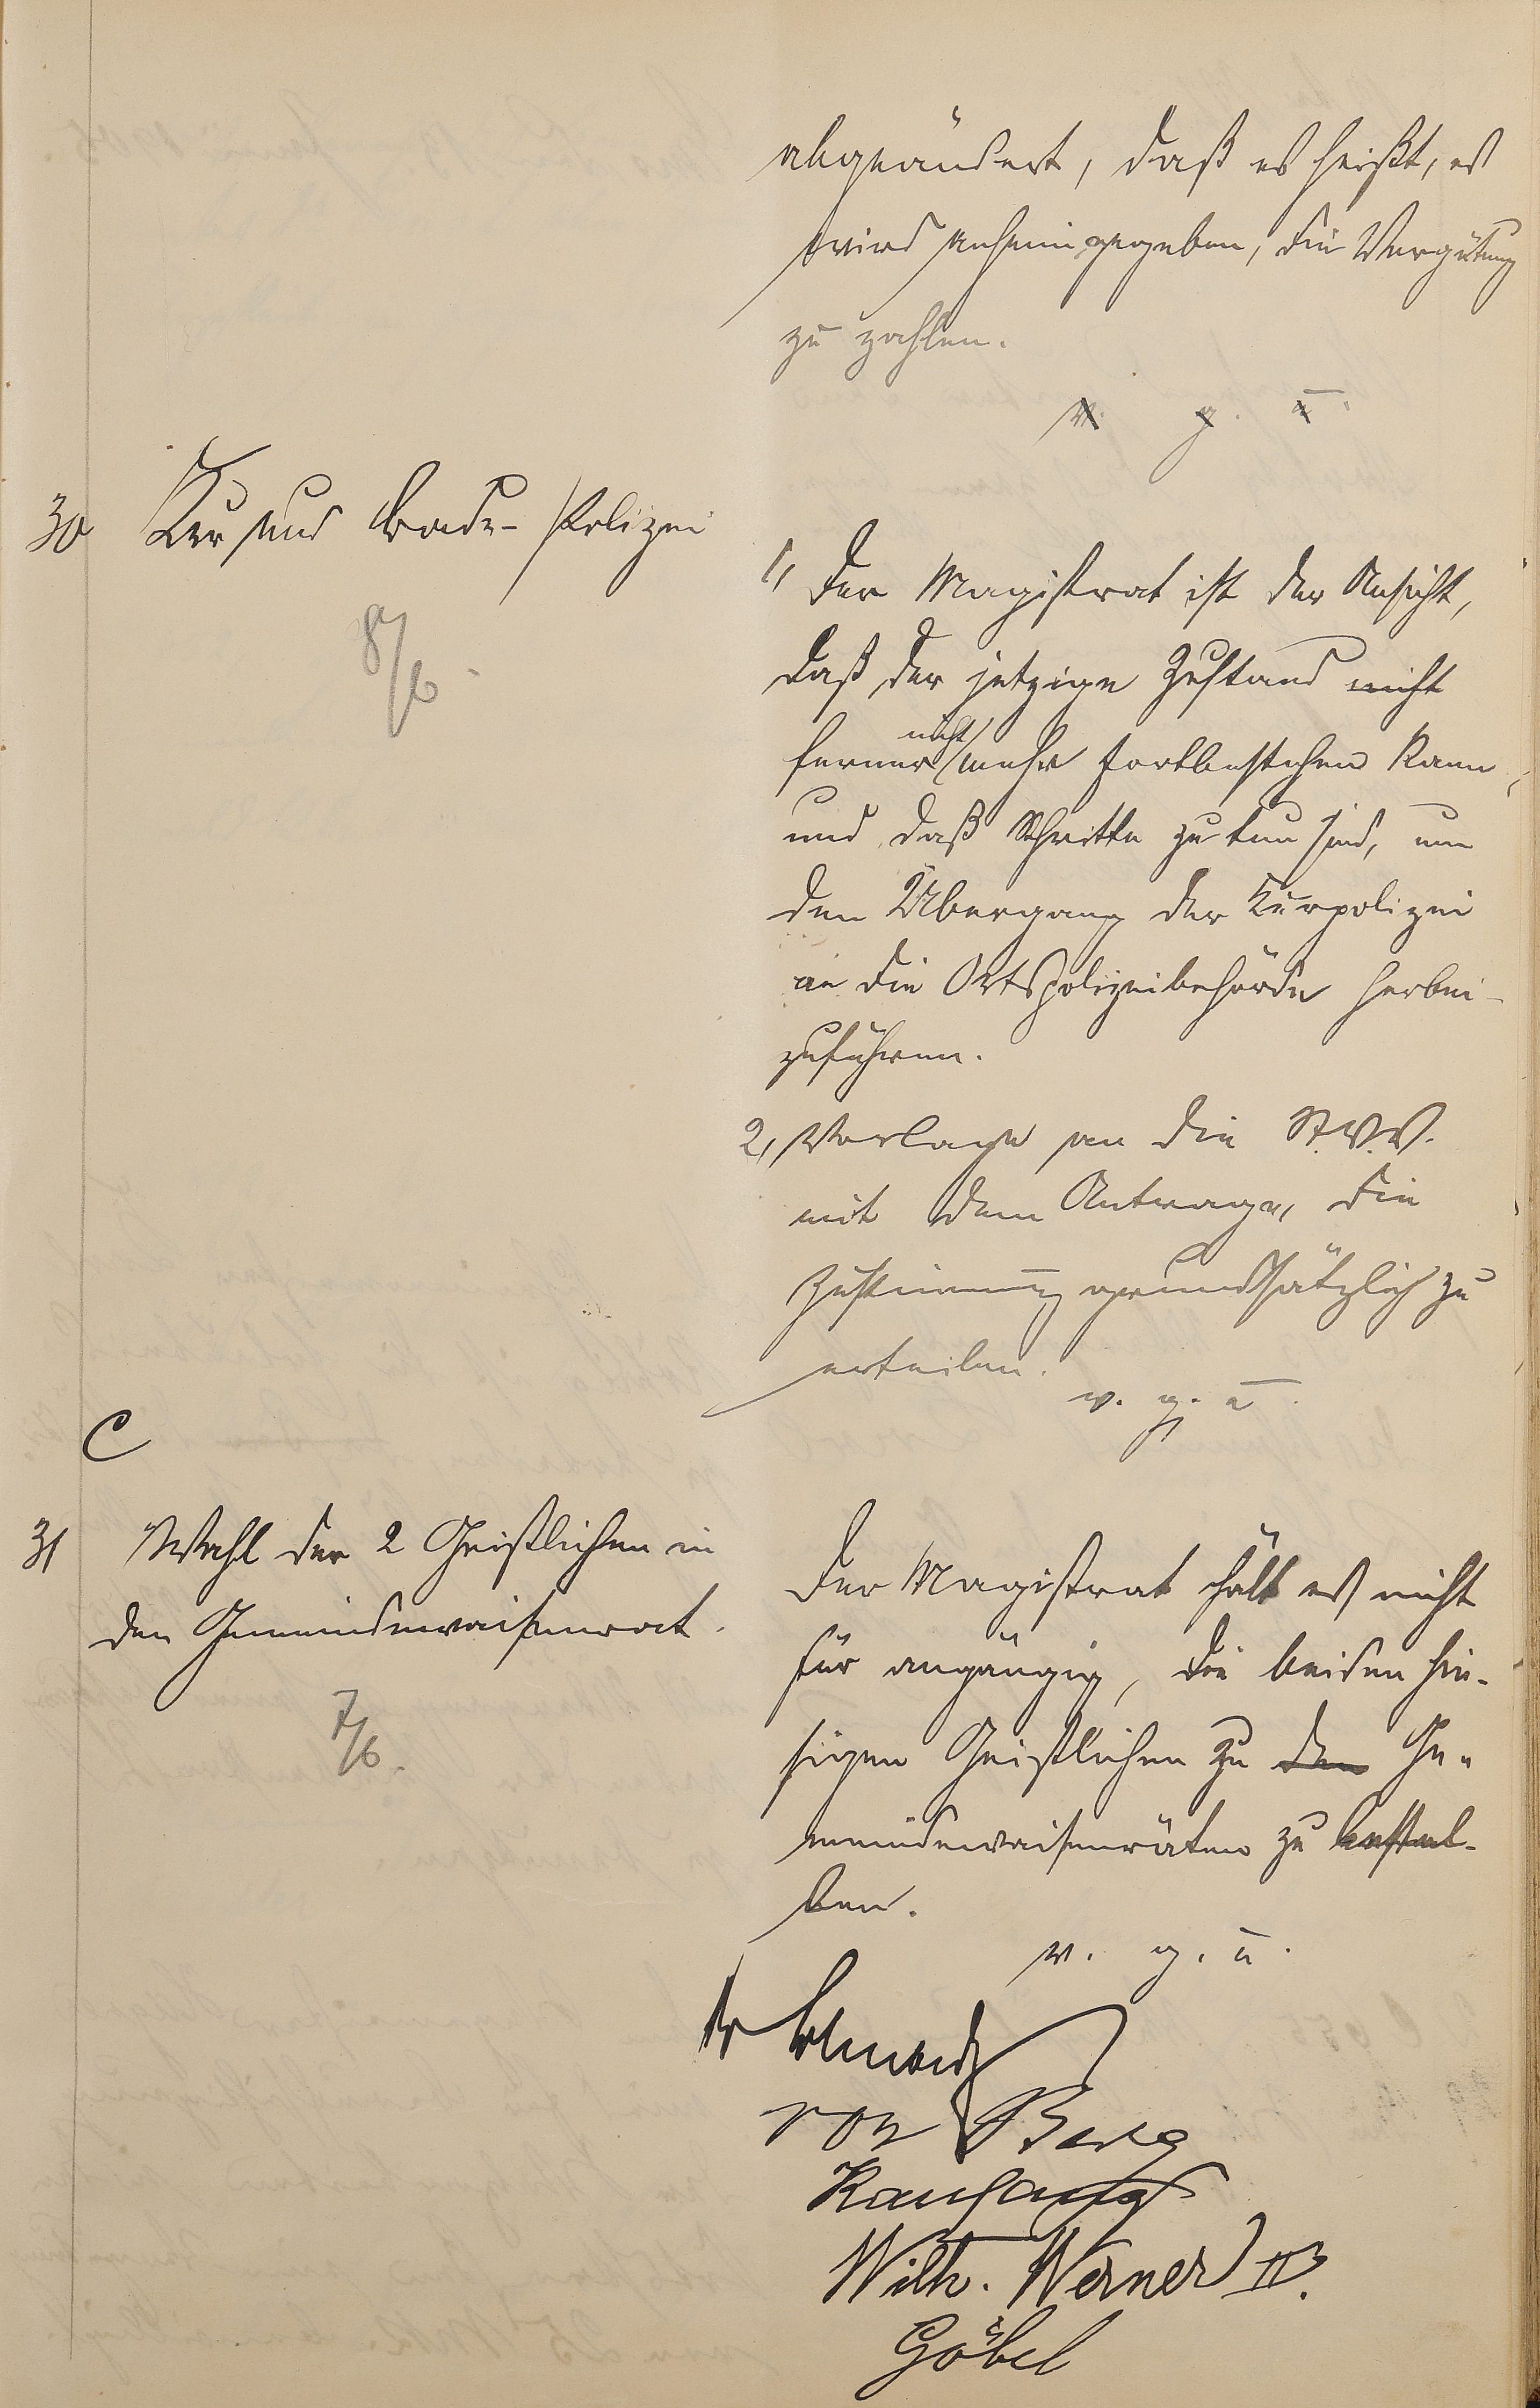 abgeändert, daß es heißt, es
wird anheimgegeben, die Vergütung
zu zahlen.
v. g. u.
30 Kur und Bade-Polizei
8/6.
1, Der Magistrat ist der Ansicht,
daß der jetzige Zustand nicht
ferner nicht mehr fortbestehen kann,
und daß Schritte zu tun sind, um
den Übergang der Kurpolizei
an die Ortspolizeibehörde herbei-
zuführen.
2, Vorlage an die St.V.V.
mit dem Antrage, die
Zustimmung grundsätzlich zu
erteilen.
v. g. u.
C
31 Wahl der 2 Geistlichen in
den Gemeindewaisenrat.
7/6.
Der Magistrat hält es nicht
für angängig, die beiden hie-
sigen Geistlichen zu den Ge-
meindewaisenräten zu bestel-
len.
v. g. u.
von Berg
Wilh. Werner II.
Göbel